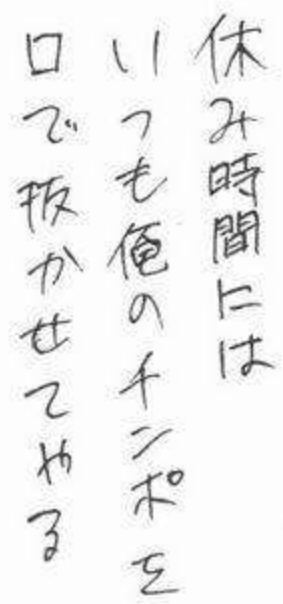 休み時間には
いつも俺のチンポを
口で抜かせてやる